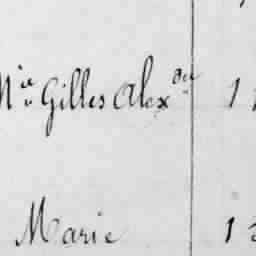 Mie Gilles Alexdre 1
Marie 1